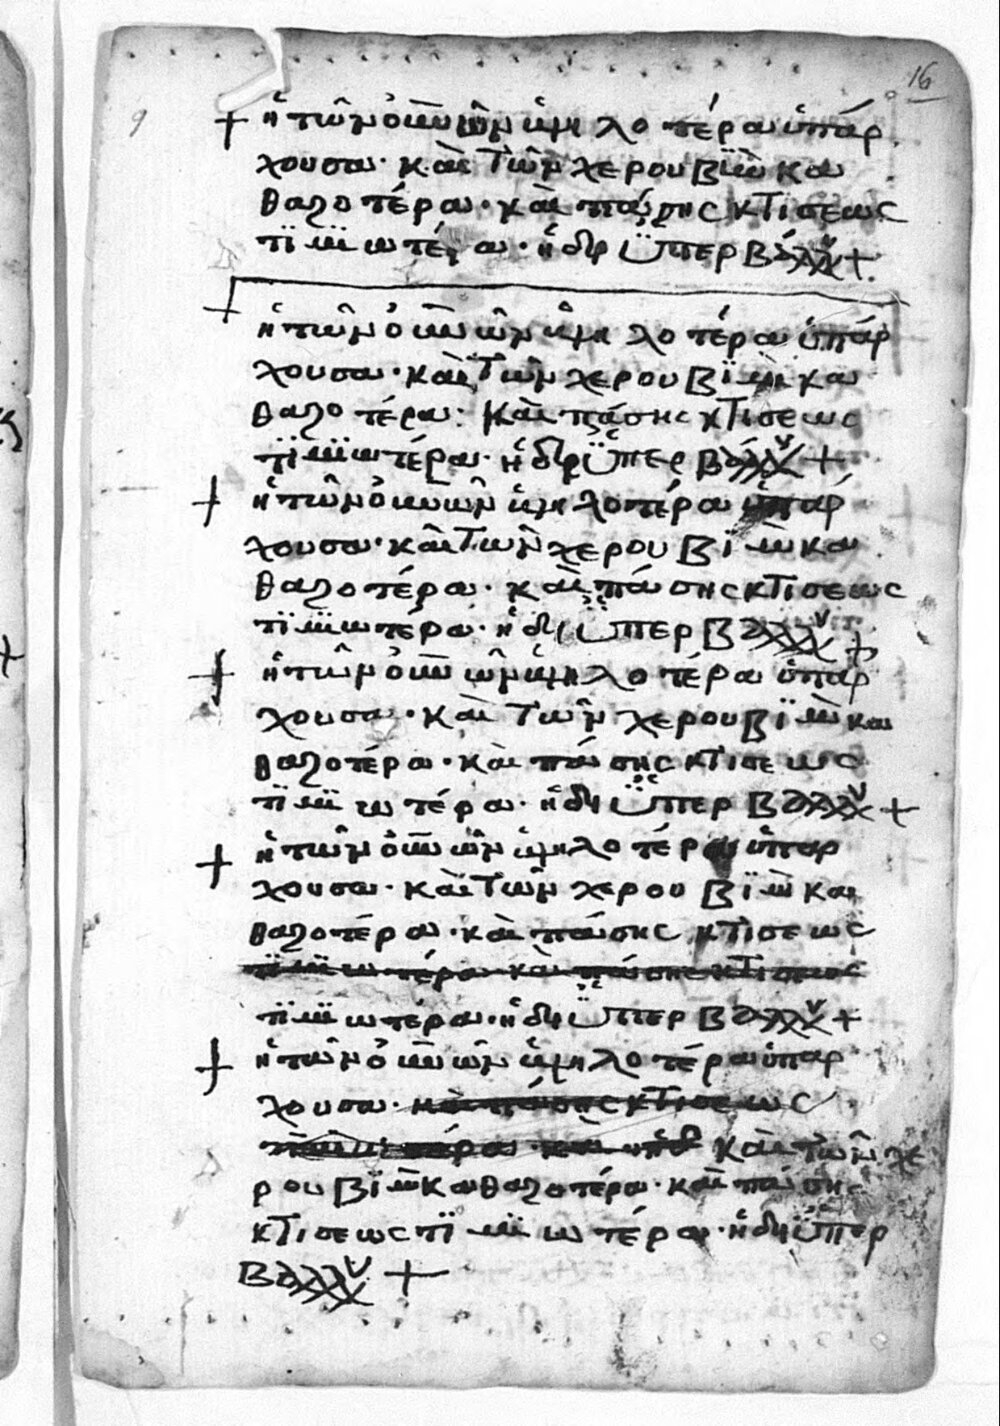 16
9
+ ἡ τῶν οὐνῶν ὑψηλοτέρα ὑπάρ
χουσα· καὶ τῶν χερουβὶμ κα
θαροτέρα· καὶ πάσης κτίσεως
τϊμϊωτέρα· ἡ δι ὑπερβάλλ +
+ ἡ τῶν οὐνῶν ὑψηλοτέρα ὑπάρ
χουσα· καὶ τῶν χερουβϊμ κα
θαροτέρα· καὶ πάσης κτίσεως
τϊμϊωτέρα· ἡ δι ὑπερβάλλ +
+ ἡ τῶν οὐνῶν ὑψηλοτέρα ὑπάρ
χουσα· καὶ τῶν χερουβϊμ κα
θαροτέρα· καὶ πάσης κτίσεως
τϊμϊωτέρα· ἡ δι ὑπερβαλλ +
+ ἡ τῶν οὐνῶν ὑψηλοτέρα ὑπαρ
χουσα· καὶ τῶν χερουβϊμ κα
θαροτέρα· καὶ πάσης κτίσεως
τϊμϊωτέρα· ἡ δι ὑπερβαλλ +
+ ἡ τῶν οὐνῶν ὑψηλοτέρα ὑπαρ
χουσα· καὶ τῶν χερουβϊμ κα
θαροτέρα· καὶ πάσης κτίσεως
τϊμϊωτέρα καὶ πάσης κτίσεως
τϊμϊωτέρα· ἡ δι ὑπερβαλλ +
+ ἡ τῶν οὐνῶν ὑψηλοτέρα ὑπαρ
χουσα· καὶ πάσης κτίσεως
καὶ τῶν χε
ρουβϊμ καθαροτέρα· καὶ πάσης
κτίσεως τϊμϊωτέρα· ἡ δι ὑπερ
βαλλ +